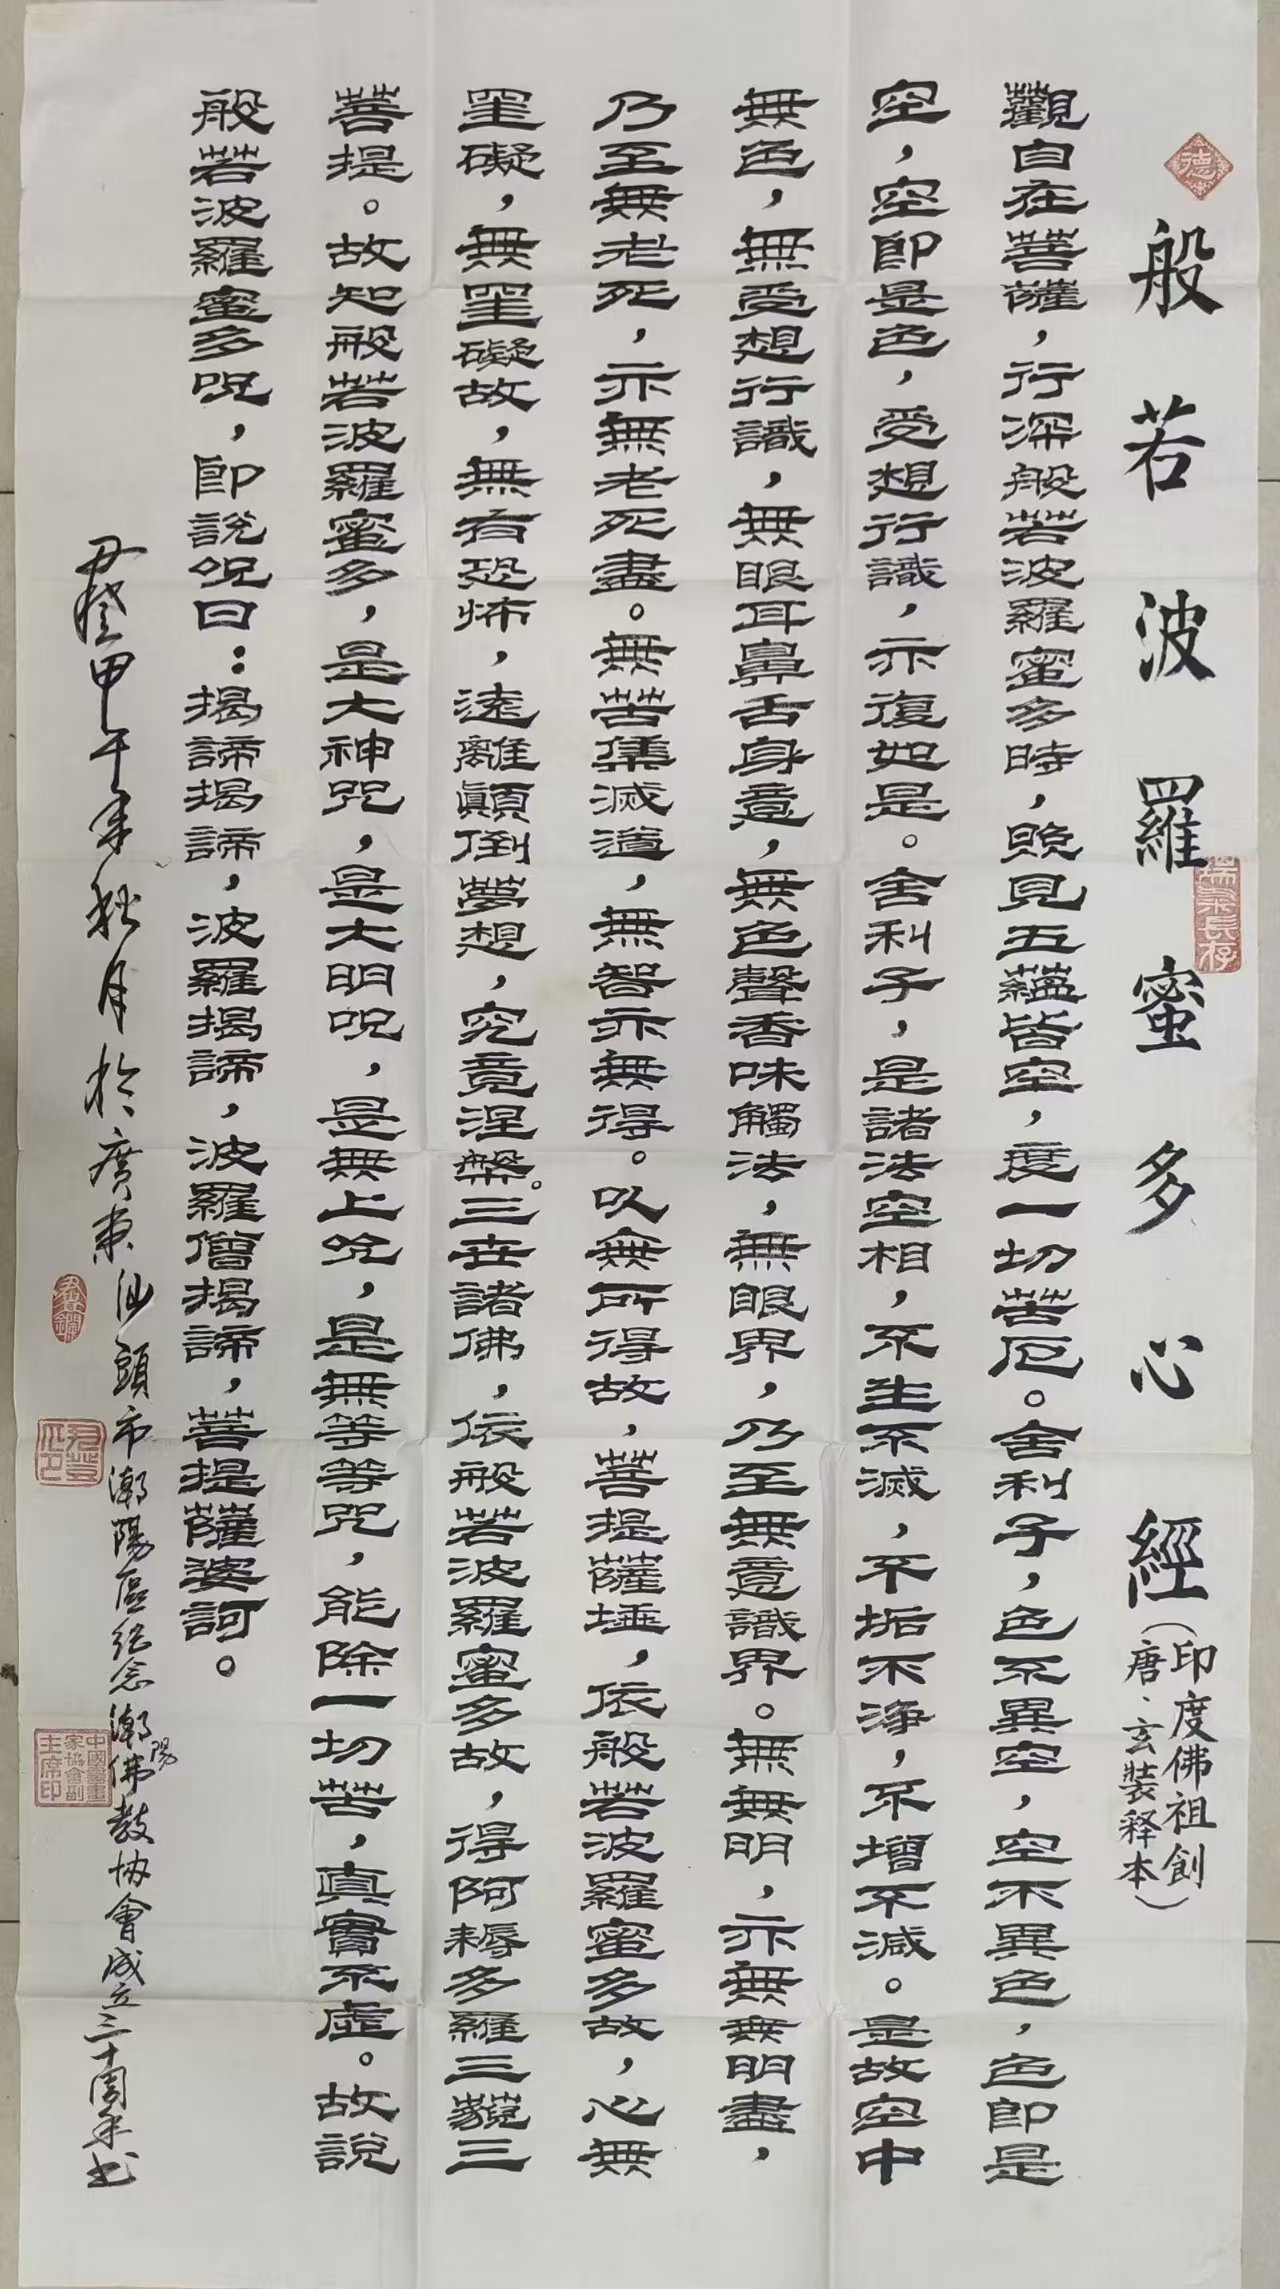 般若波羅蜜多心經
（印度佛祖創
唐、玄裝释本）
觀自在菩薩，行深般若波羅蜜多時，照見五蘊皆空，度一切苦厄。舍利子，色不異空，空不異色，色即是
空，空即是色，受想行識，亦復如是。舍利子，是諸法空相，不生不滅，不垢不净，不增不減。是故空中
無色，無受想行識，無眼耳鼻舌身意，無色聲香味觸法，無眼界，乃至無意識界。無無明，亦無無明盡，
乃至無老死，亦無老死盡。無苦集滅道，無智亦無得。以無所得故，菩提薩埵，依般若波羅蜜多故，心無
罣礙，無罣礙故，無有恐怖，遠離顛倒夢想，究竟涅槃。三世諸佛，依般若波羅蜜多故，得阿耨多羅三藐三
菩提。故知般若波羅蜜多，是大神咒，是大明呪，是無上咒，是無等等咒，能除一切苦，真實不虛。故說
般若波羅蜜多呪，即說呪曰：揭諦揭諦，波羅揭諦，波羅僧揭諦，菩提薩婆訶。
甲午年秋月於廣東汕頭市潮陽區纪念潮陽佛教协會成立三十周年书
德
長存
中國書畫
家協會副
主席印